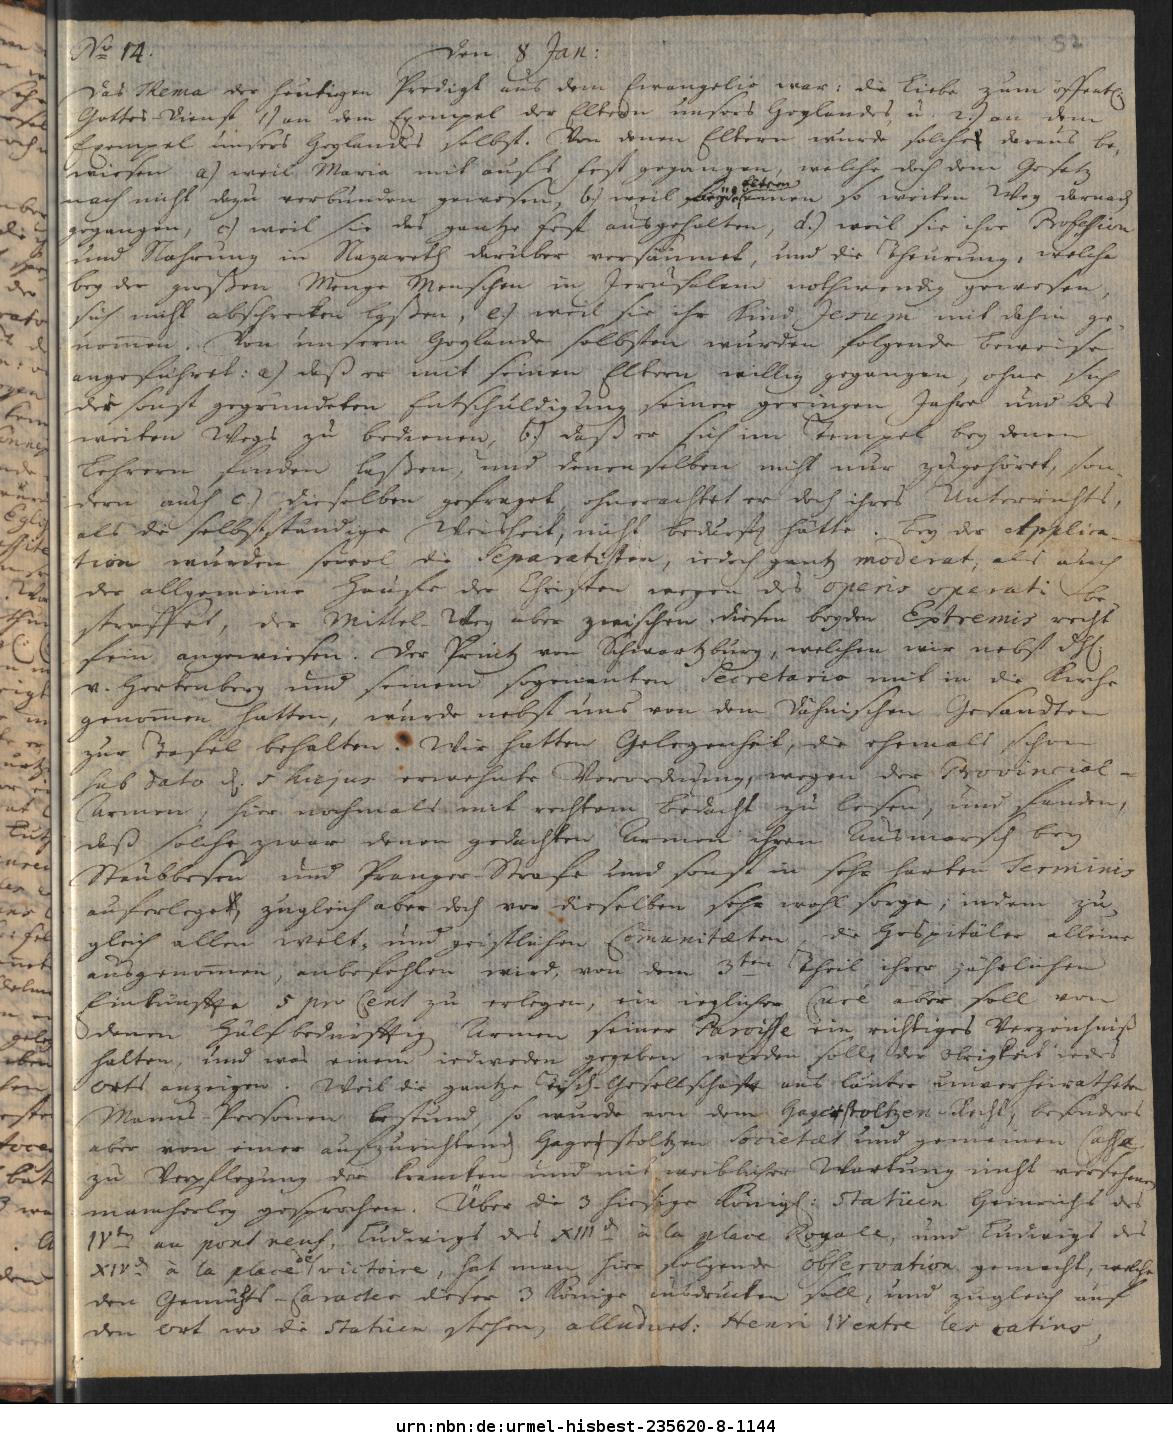 No 14. den 8 Jan: 52
Das Thema der heutigen Predigt aus dem Evangelio war: die Liebe zum öffentl.
Gottes-Dienst 1) an dem Exempel der Eltern unsers Heylandes, u. 2.) an dem
Exempel unsers Heylandes selbst. Von denen Eltern wurde solches daraus be-
wiesen a) weil Maria mit aufs Fest gegangen, welche doch dem Gesetz
nach nicht dazu verbunden gewesen, b) weil so weiten Weg darnach
gegangen, c) weil sie das gantze Fest ausgehalten, d.) weil sie ihre Profession
und Nahrung in Nazareth darüber versäumet, und die Theurung, welche
bey der großen Menge Menschen in Jerusalem nothwendig gewesen,
sich nicht abschrecken laßen, e.) weil sie ihr Kind Jesum mit dahin ge-
nommen. Von unserm Heylande selbsten wurden folgende Beweise
angeführet: a) daß er mit seinen Eltern willig gegangen, ohne sich
der sonst gegründeten Entschuldigung seiner geringen Jahre und des
weiten Wegs zu bedienen, b.) daß er sich im Tempel bey denen
Lehrern finden laßen, und denenselben nicht nur zugehöret, son-
dern auch c.) dieselben gefraget, ohnerachtet er doch ihres Unterrichts,
als die selbstständige Weisheit, nicht bedurfft hätte. Bey der Applica-
tion wurden sowol die Separatisten, iedoch gantz moderat, als auch
der allgemeine Hauffe der Christen wegen des operis operati be-
straffet, der Mittel-Weg aber zwischen diesen beyden Extremis recht
fein angewiesen. Der Printz von Schwartzburg, welchen wir nebst
v. Hertenberg und seinem sogenanten Secretario mit in die Kirche
genommen hatten, wurde nebst uns von dem Dähnischen Gesandten
zur Tafel behalten. Wir hatten Gelegenheit, die ehemals schon
sub dato d. 5 hujus erwehnte Verordnung, wegen der Provincial-
Armen, hier nochmals mit rechtem Bedacht zu lesen, und fanden,
daß solche zwar denen gedachten Armen ihren Ausmarsch bey
Staubbesen und Pranger-Strafe und sonst in sehr harten Terminis
auferleget, zugleich aber doch vor dieselben sehr wohl sorge, indem zu-
gleich allen welt- und geistlichen Comunitæten, die Hospitäler alleine
ausgenommen, anbefohlen wird, von dem 3ten Theil ihrer jährlichen
Einkünffte 5 pro Cent zu erlegen, ein ieglicher Curé aber soll von
denen Hülfbedürfftig Armen seiner Paroisse ein richtiges Verzeichniß
halten, und was einem iedweden gegeben werden soll, der Obrigkeit iedes
Orts anzeigen. Weil die gantze Tisch-Gesellschaft aus lauter unverheiratheten
Manns-Personen bestund, so wurde von dem Hagestoltzen-Recht, besonders
aber von einer aufzurichtend Hagestoltzen Societæt und gemeinen Cassa
zu Verpflegung der krancken und mit weiblicher Wartung nicht versehenen
mancherley gesprochen. Über die 3 hiesige Königl: Statüen Heinrichs des
IVten au pont neuf, Ludwigs des XIIIt à la place Royale, und Ludwigs des
XIVt à la place de victoire, hat man hier folgende observation gemacht, welche
den Gemüths-Caracter dieser 3 Könige ausdrucken soll, und zugleich auf
den Ort wo die Statüen stehen, alludiret: Henri IV entre les catins,
urn:nbn:de:urmel-hisbest-235620-8-1144